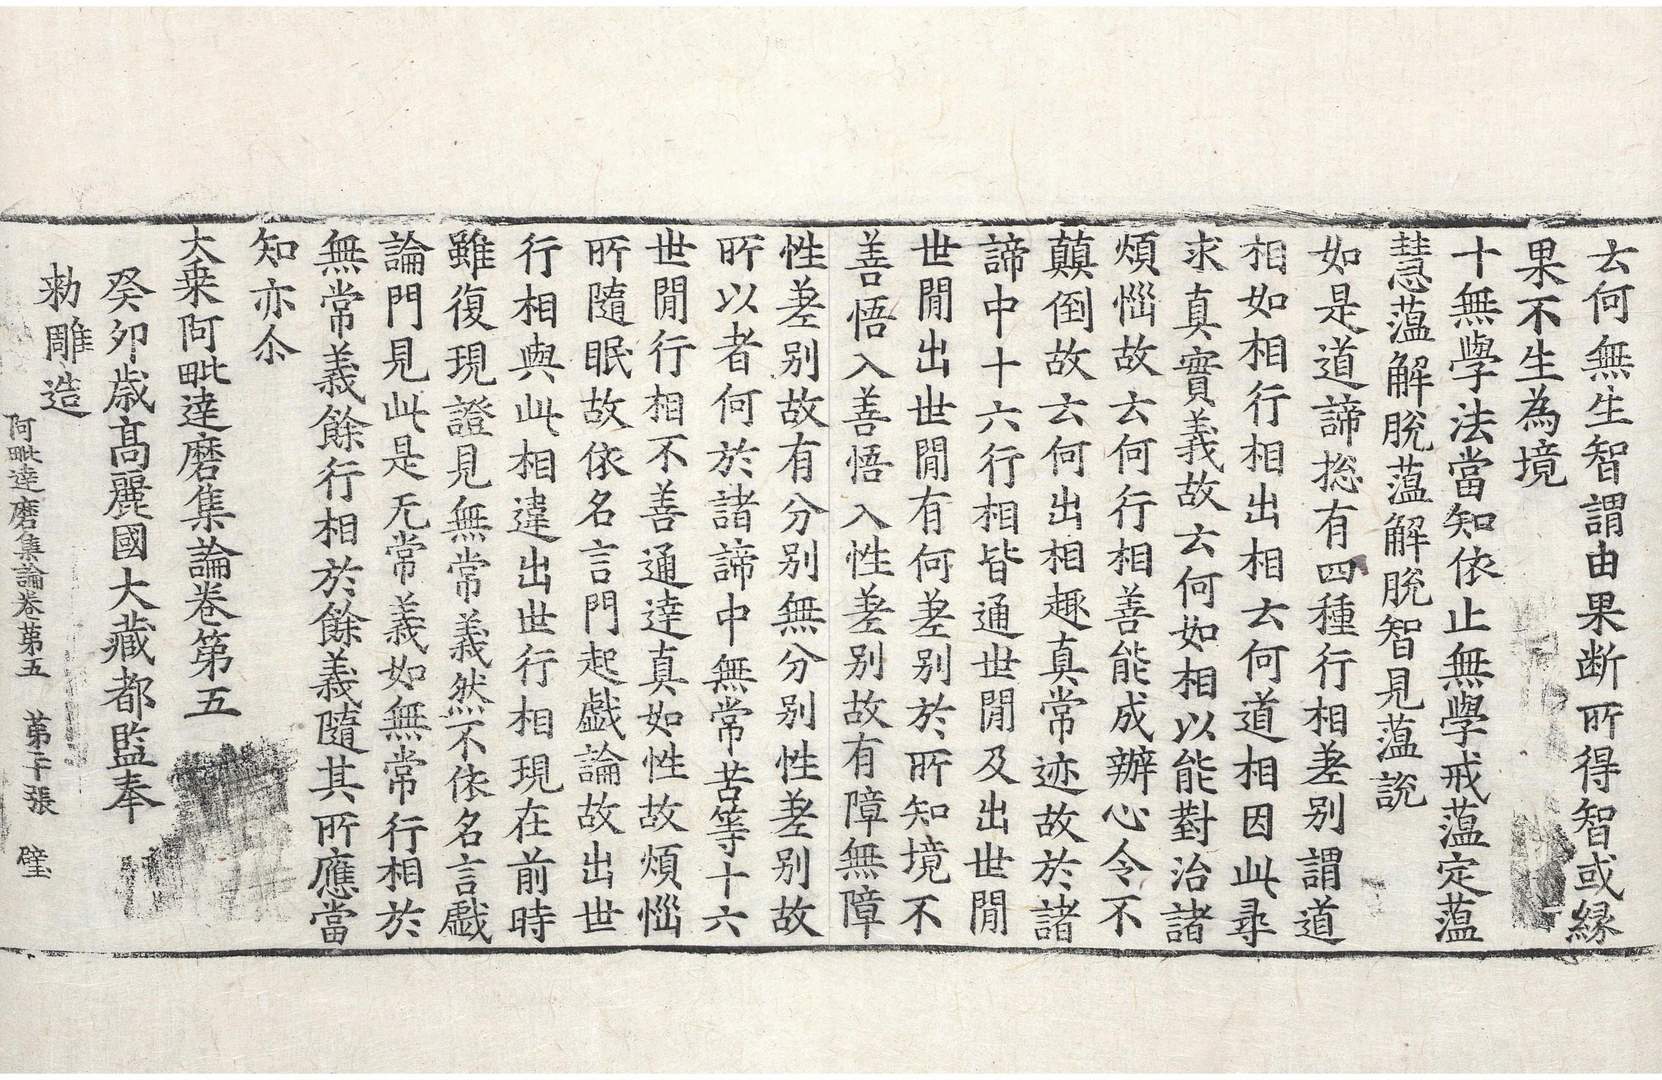 云何無生智謂由果断所得智或縁
果不生為境
十無學法當知依止無學戒蕰定蕰
慧蕰解脫蕰解脫智見蕰說
如是道諦揔有四種行相差别謂道
相如相行相出相云何道相因此尋
求真實義故云何如相以能對治諸
煩惱故云何行相善能成辦心令不
顛倒故云何出相趣真常迹故於諸
諦中十六行相皆通世間及出世間
世間出世間有何差别於所知境不
善悟入善悟入性差别故有障無障
性差别故有分别無分别性差别故
所以者何於諸諦中無常苦等十六
世間行相不善通達真如性故煩惱
所隨眠故依名言門起戲論故出世
行相與此相違出世行相現在前時
雖復現證見無常義然不依名言戲
論門見此是无常義如無常行相於
無常義餘行相於餘義隨其所應當
知亦尒
大乗阿毗達磨集論卷第五
癸卯歳高麗國大藏都監奉
勅雕造
阿毗達磨集論卷第五 第二十張 璧